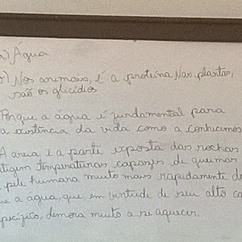 a) Água
b) Nos animais, é a proteína. Nas plantas,
são os glicídios
Porque a água é fundamental para
a existência da vida como a conhecemos
A areia é a parte exposta das rochas
atigem temperaturas capazes de queimar
pele humana muito mais rapidamente do
que a água, que em virtude de seu alto ca
específico, demora muito a se aquecer.